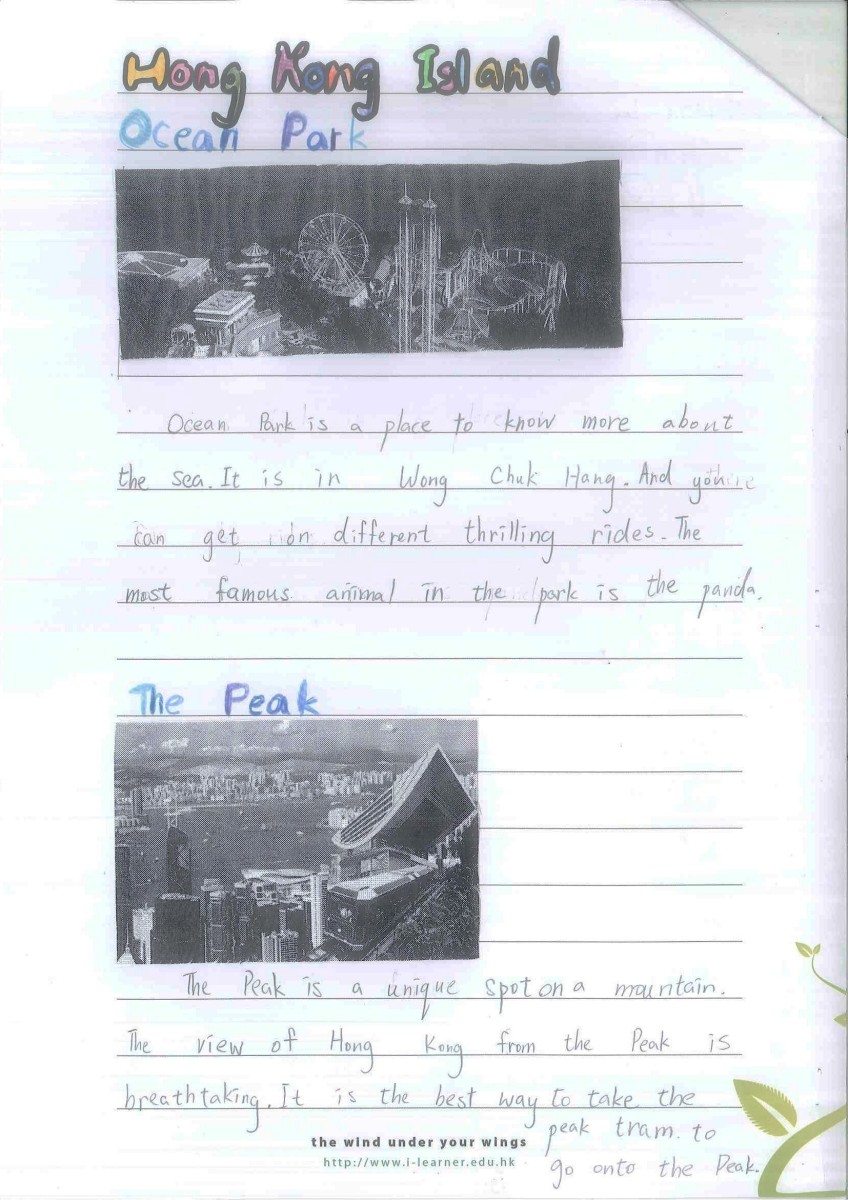 Hong Kong Island
Ocean Park
Ocean Park is a place to know more about
the sea. It is in Wong Chuk Hang. And you
can get on different thrilling rides. The
most famous animal in the park is the panda.
The Peak
The Peak is a unique spot on a mountain.
The view of Hong Kong from the Peak is
breathtaking. It is the best way to take the
peak tram to
go onto the Peak.
the wind under your wings
http://www.i-learner.edu.hk